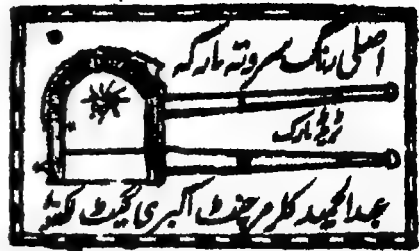 اصلی رنگ سروتہ مارکہ
ٹریڈ مارک
عبدالحمید کلر مرچنٹ اکبری گیٹ لکھنؤ